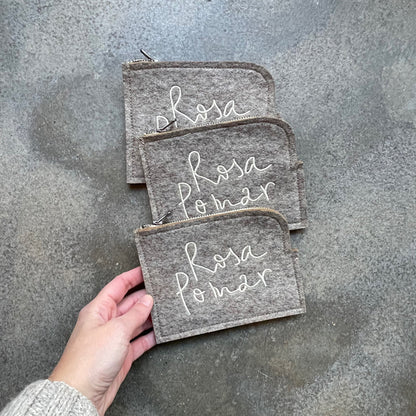 Rosa
Pomar
Rosa
Pomar
Rosa
Pomar